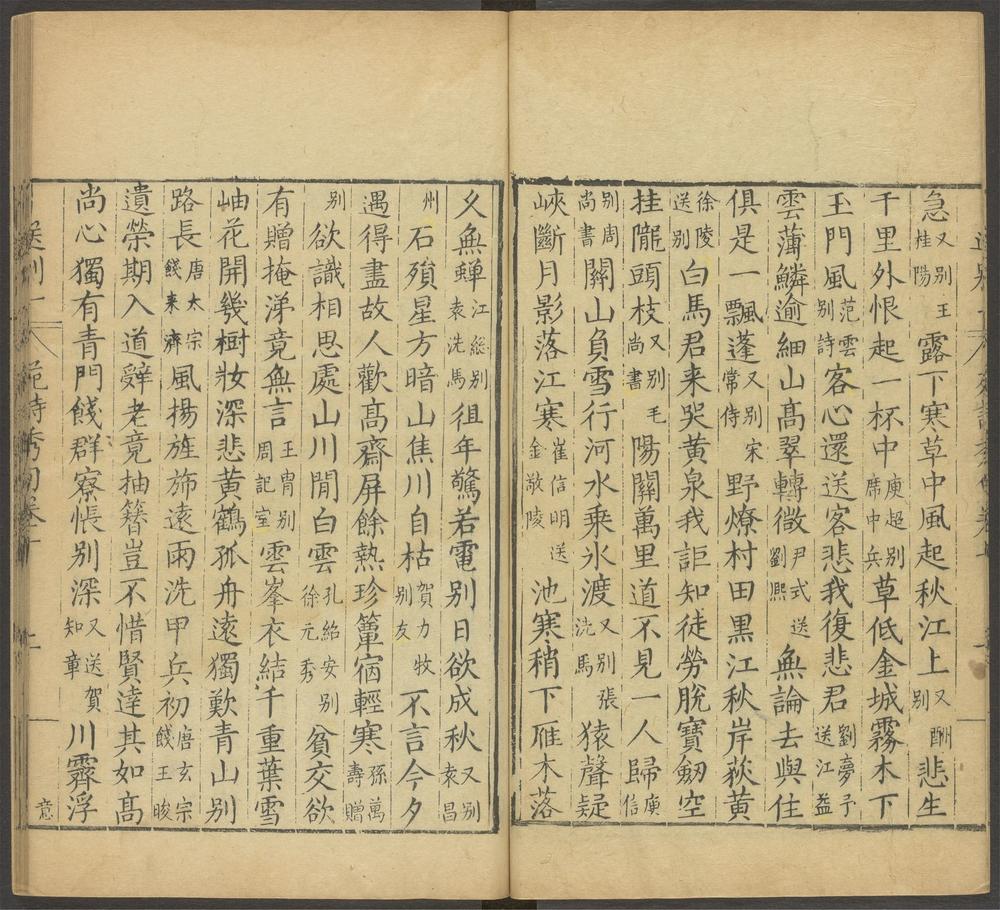 急又别王桂陽露下寒草中風起秋江上又酬别悲生
千里外恨起一杯中庾超别席中兵草低金城霧木下
玉門風范雲别詩客心還送客悲我復悲君劉夢予送江益
雲薄鱗逾細山高翠轉微尹式送劉熙無論去與住
俱是一飄蓬又别宋常侍野燎村田黑江秋岸荻黄
徐陵送别白馬君来哭黄泉我詎知徒勞脱寶劒空
挂隴頭枝又别毛尚書陽關萬里道不見一人歸庾信
别周尚書關山負雪行河水乗氷渡又别張洗馬猿聲疑
峽斷月影落江寒崔信明送金敬陵池寒稍下雁木落
久無蟬江総别袁洗馬徂年驚若電别日欲成秋又别袁昌
州石殞星方暗山焦川自枯賀力牧别友不言今夕
遇得盡故人歡高齋屏餘熱珍簟宿輕寒孫萬壽贈
别欲識相思處山川間白雲孔紹安别徐元秀貧交欲
有贈掩涕竟無言王胄别周記室雲峯衣結千重葉雪
岫花開幾樹妝深悲黄鶴孤舟遠獨歎青山别
路長唐太宗餞来濟風揚旌斾遠雨洗甲兵初唐玄宗餞王晙
遺榮期入道辭老竟抽簪豈不惜賢達其如高
尚心獨有青門餞群寮悵别深又送賀知章川霽浮
意
送别一 苑詩秀句卷十 上